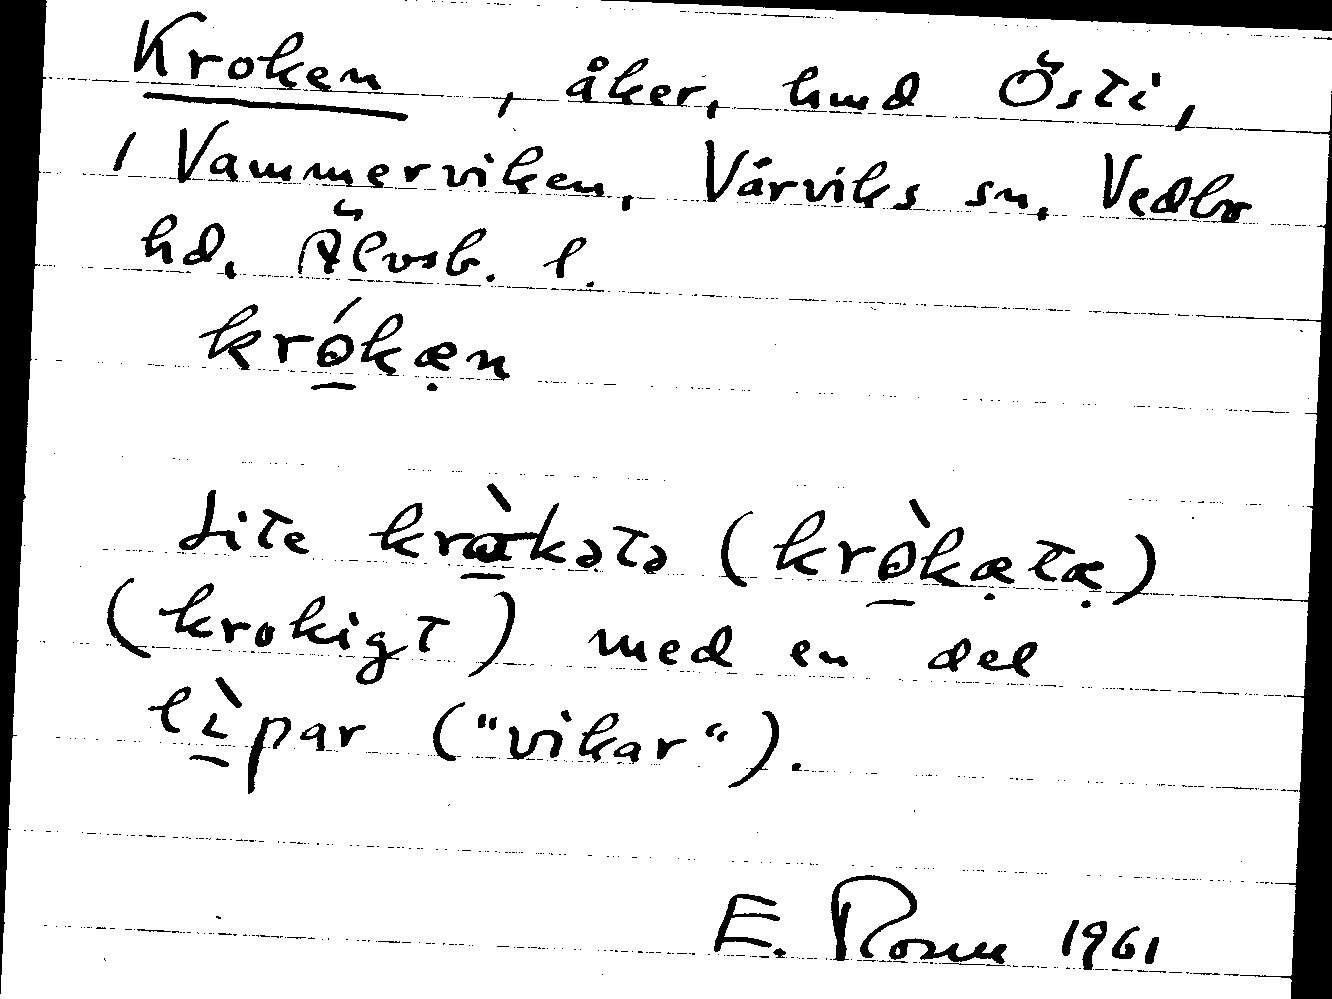 Kroken, åker, hmd Östi,
1 Vammerviken, Vårviks sn, Vedbo
hd, Älvsb. l.
kró̱kæ̣n
Lite krò̱kətə (krò̱kæ̣tæ̣)
(krokigt) med en del
lì̱par ("vikar").
E. Rosen 1961